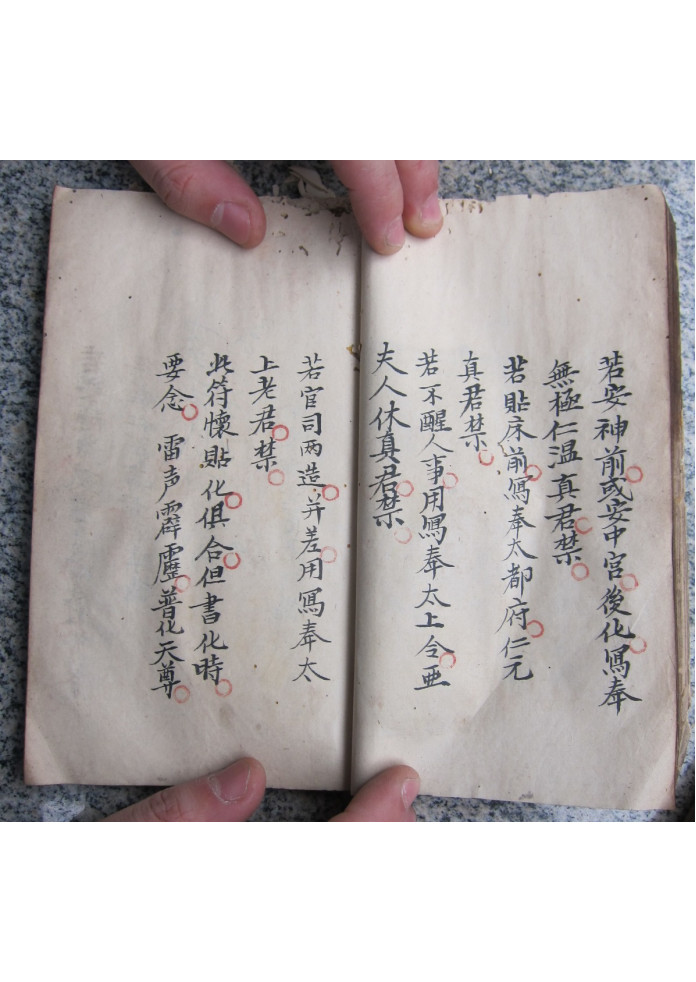 若安神前或安中宮後化寫奉
無極仁温真君禁
若貼床前寫奉太都府仁元
真君禁
若不醒人事用寫奉太上令亜
夫人休真君禁
若官司两造并差用寫奉太
上老君禁
此符懷貼化俱合但書化時
要念雷声霹靂普化天尊